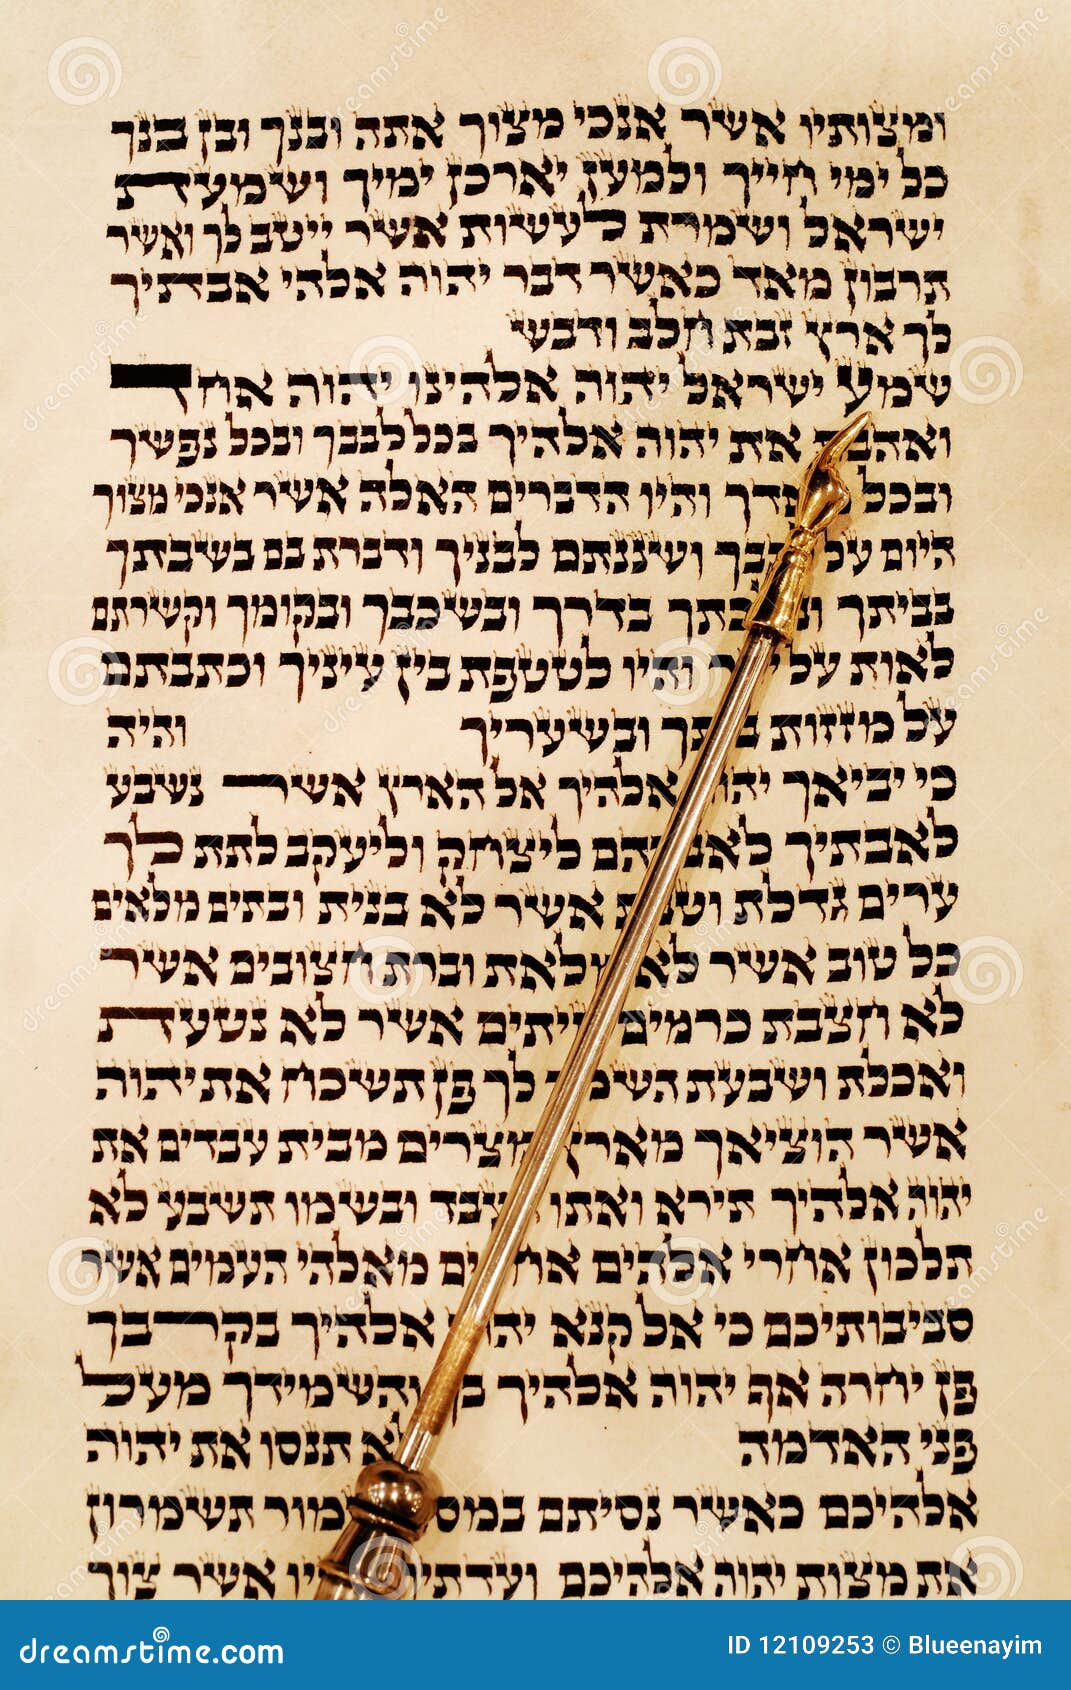 ומצותיו אשר אנכי מצוך אתה ובנך ובן בנך
כל ימי חייך ולמען יארכן ימיך ושמעת
ישראל ושמרת לעשות אשר ייטב לך ואשר
תרבון מאד כאשר דבר יהוה אלהי אבתיך
לך ארץ זבת חלב ודבש
שמע ישראל יהוה אלהינו יהוה אחד
ואהבת את יהוה אלהיך בכל לבבך ובכל נפשך
ובכל והיו הדברים האלה אשר אנכי מצוך
היום על ושננתם לבניך ודברת בם בשבתך
בביתך בדרך ובשכבך ובקומך וקשרתם
לאות על והיו לטטפת בין עיניך וכתבתם
על מזזות ובשעריך והיה
כי יביאך יהוה אלהיך אל הארץ אשר נשבע
לאבתיך לאברהם ליצחק וליעקב לתת לך
ערים גדלת וטבת אשר לא בנית ובתים מלאים
כל טוב אשר לא מלאת וברת חצובים אשר
לא חצבת כרמים וזיתים אשר לא נטעת
ואכלת ושבעת השמר לך פן תשכח את יהוה
אשר הוציאך מארץ מצרים מבית עבדים את
יהוה אלהיך תירא ואתו תעבד ובשמו תשבע לא
תלכון אחרי אלהים אחרים מאלהי העמים אשר
סביבותיכם כי אל קנא יהוה אלהיך בקרבך
פן יחרה אף יהוה אלהיך בך והשמידך מעל
פני האדמה לא תנסו את יהוה
אלהיכם כאשר נסיתם שמור תשמרון
את מצות יהוה אלהיכם אשר צוך
dreamstime.com
ID 12109253 © Blueenayim